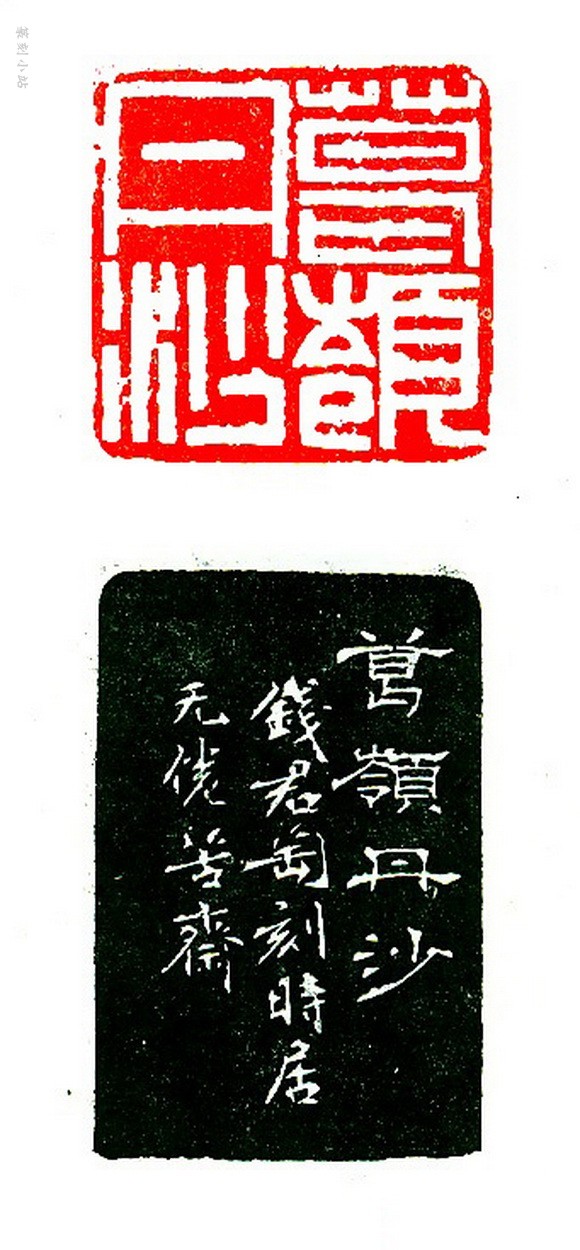 篆刻小站
葛嶺
丹沙
葛嶺丹沙
錢君匋刻時居
无倦苦齋